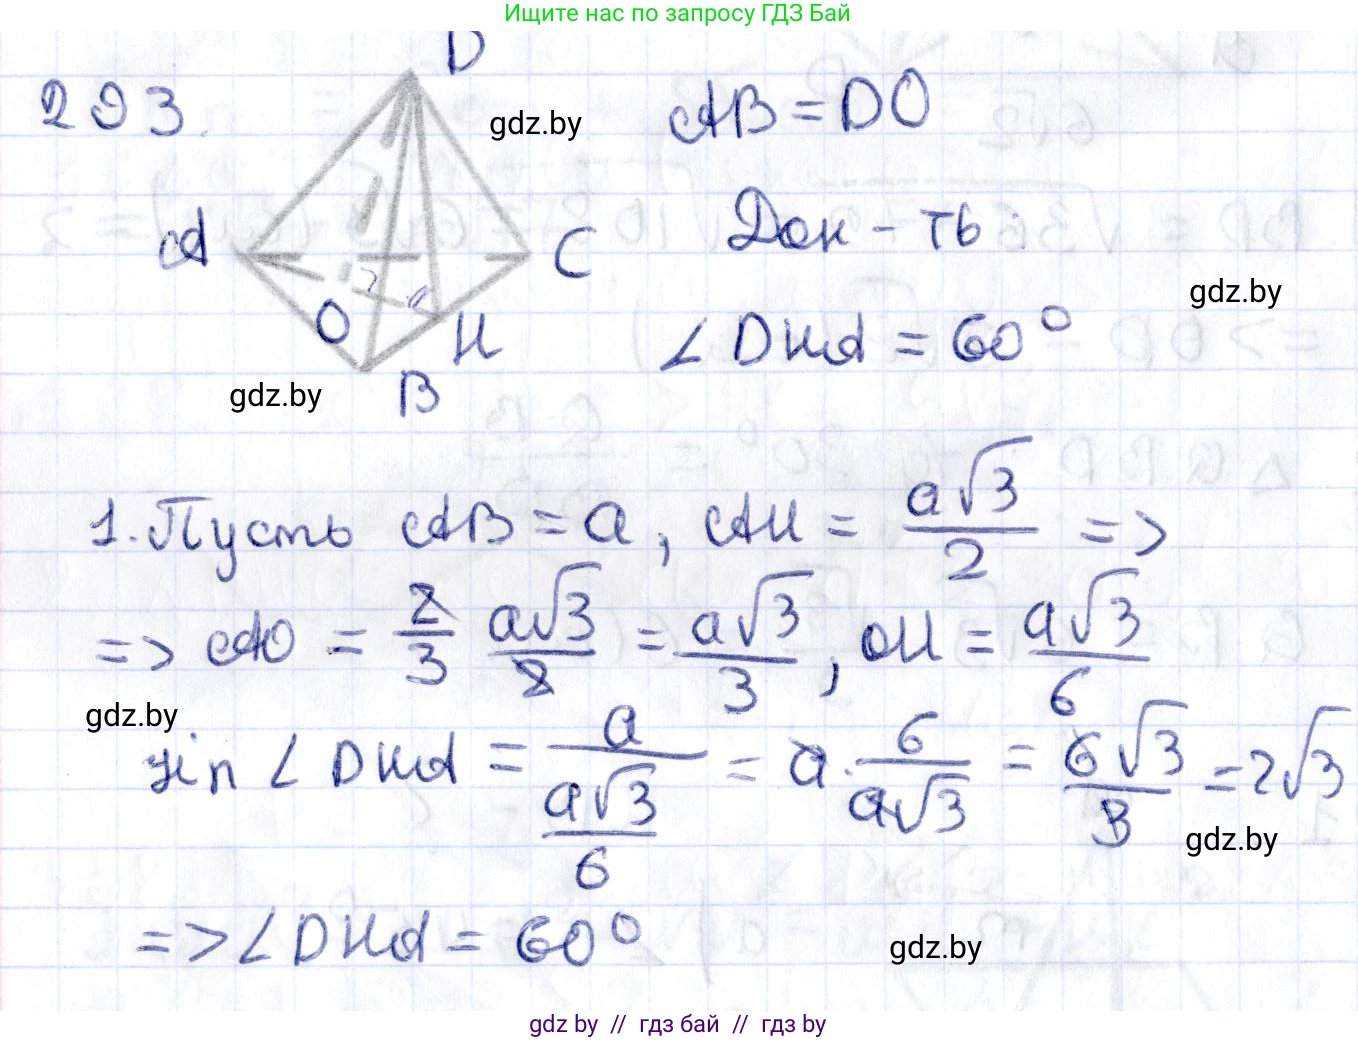 Ищите нас по запросу ГДЗ Бай
293.
D
gdz.by
AB = DO
A
C
Док-ть:
gdz.by
O
H
∠DHA = 60°
gdz.by
B
1. Пусть AB = a, AH = a√3/2 =>
=> AO = 2/3 a√3/2 = a√3/3, OH = a√3/6
gdz.by
sin ∠DHA = a/(a√3/6) = a · 6/(a√3) = 6√3/3 = 2√3
gdz.by
=> ∠DHA = 60°
gdz.by
gdz.by // гдз бай // гдз by